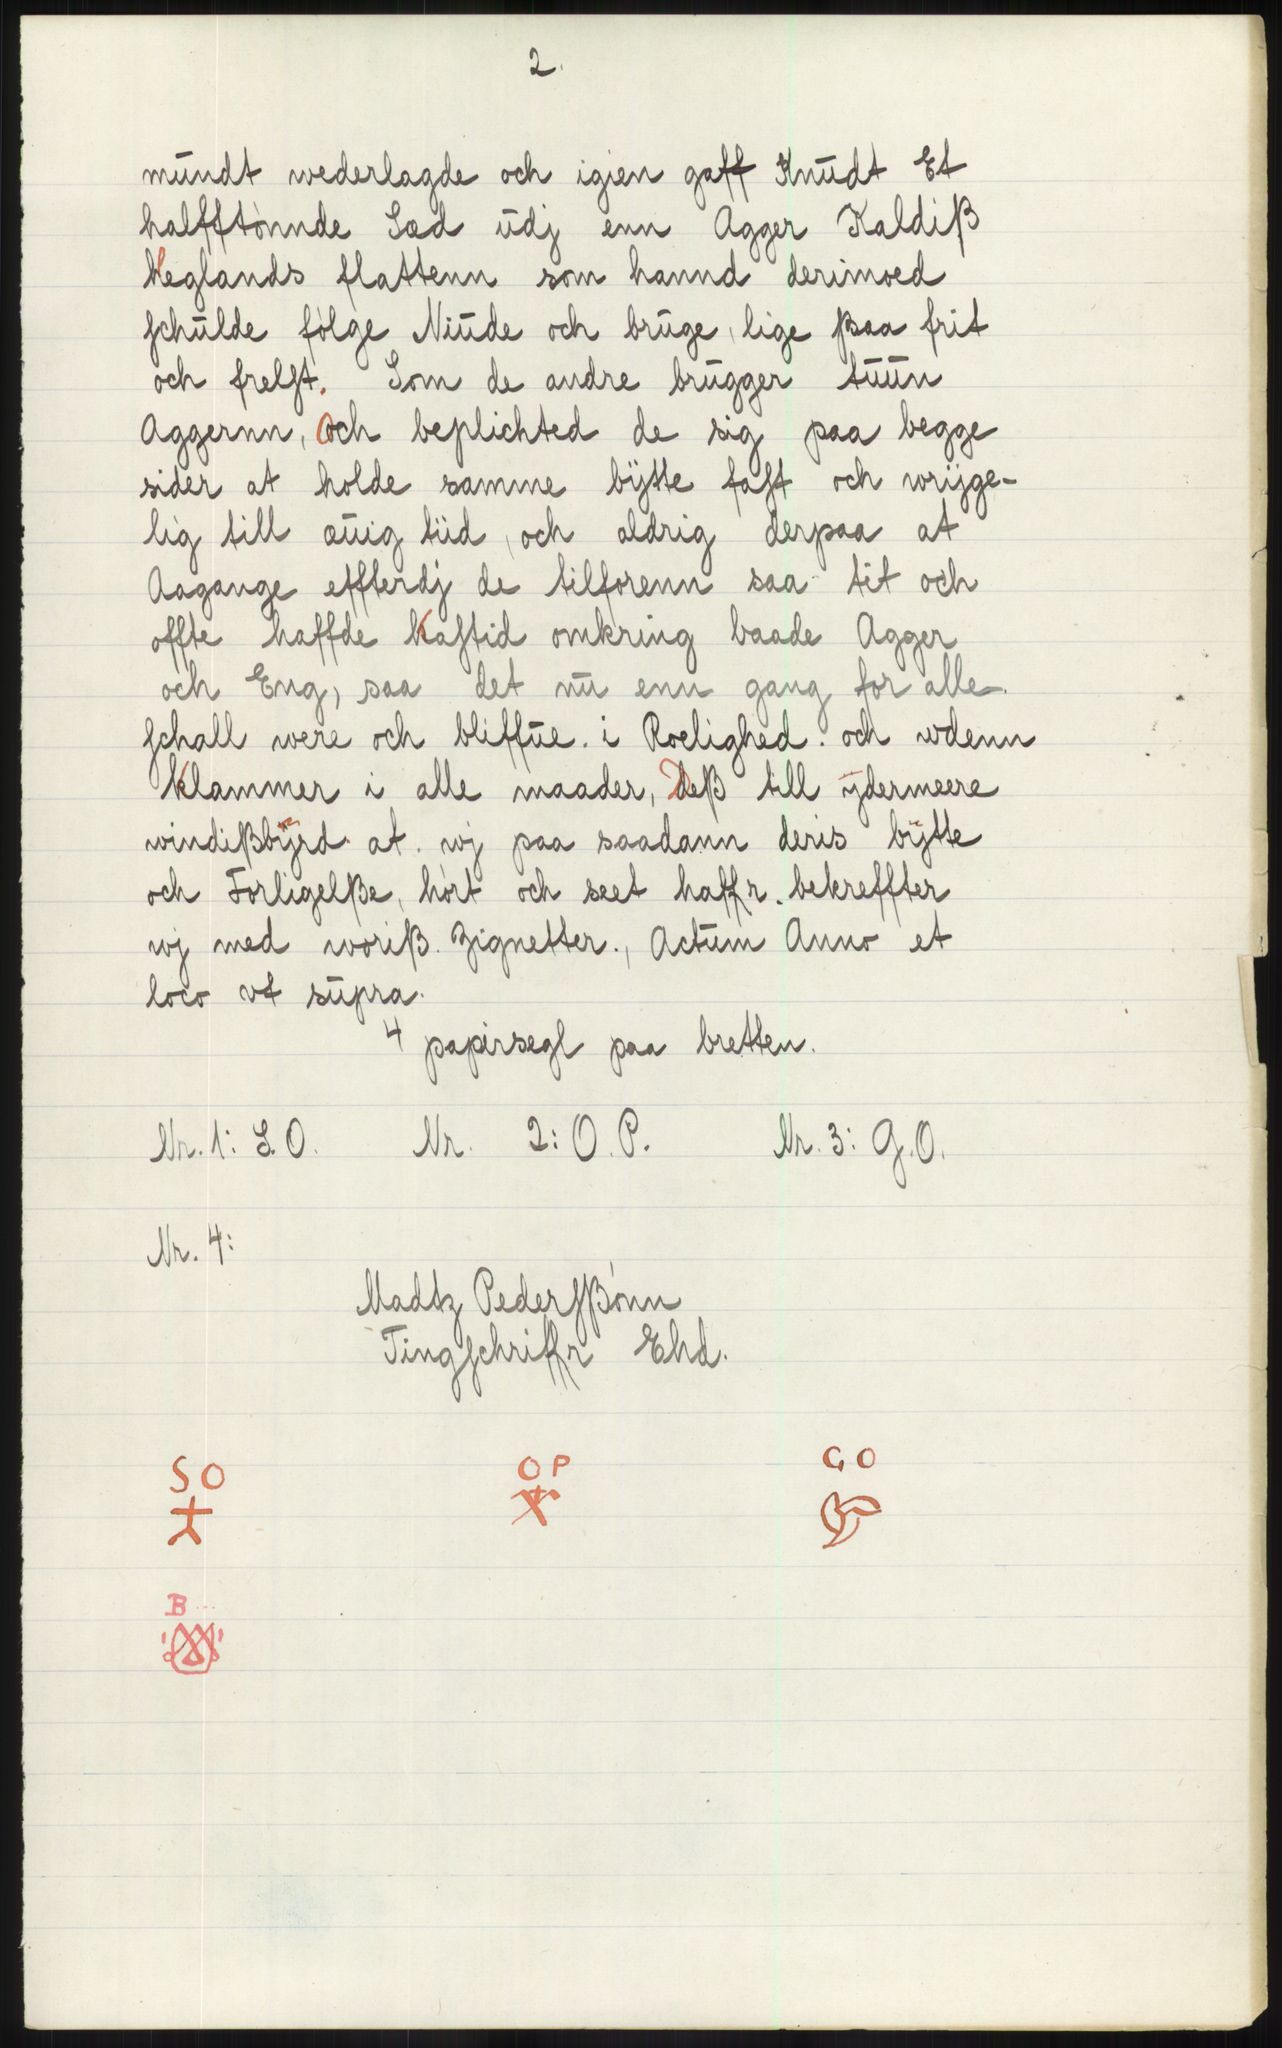 2.
mūndt wederlagde och igien gaff Knūdt Et
halfftønnde Sæd ūdj enn Agger Kaldiß
Heglands flattenn som hannd derimoed
schūlde følge Niūde och brūge, lige ßaa frit
och frelst. Som de andre brūgger tūūn
Aggernn, Och beplichted de sig paa begge
sider at holde samme bÿtte fast och wrÿge-
lig till æūig tiid, och aldrig derpaa at
Aagange effterdj de tilforenn saa tit och
offte haffde Kastid omkring baade Agger
och Eng, saa det nū enn gang for alle
schall were och bliffūe i Roelighed. och wdenn
Klammer i alle maader, Deß till ÿdermeere
windißbÿrd at wj paa saadann deris bÿtte
och Forligelße, hørt och seet haffr. bekreffter
wj med woriß Zignetter., Actūm Anno et
loco vt sūpra.
4 papirsegl paa bretten.
Nr. 1: S.O. Nr. 2: O.P. Nr. 3: G.O.
Nr. 4:
Madtz Pedersßønn
Tingschriffr Ehd.
S O O P G O
B